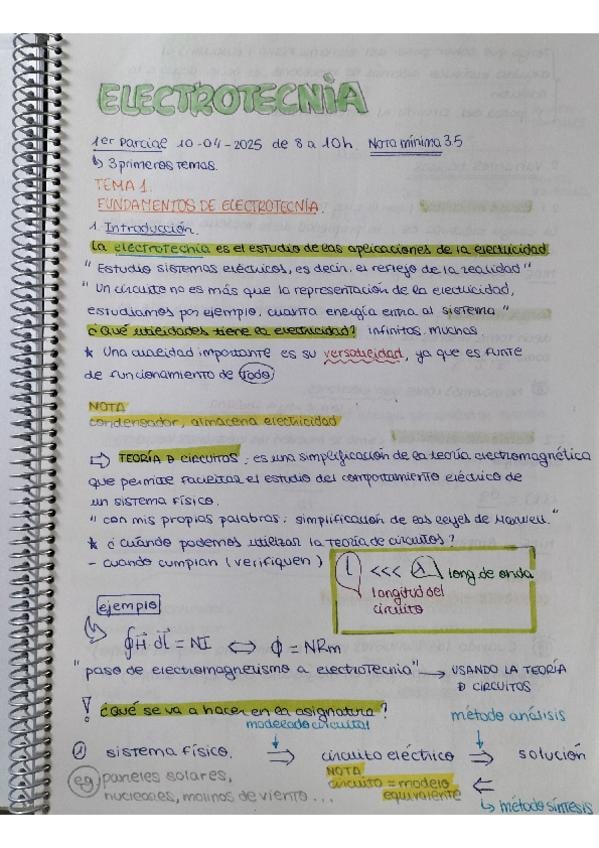 ELECTROTECNIA
1er Parcial 10-04-2025 de 8 a 10h. Nota mínima 3'5
↳ 3 primeros temas.
TEMA 1.
FUNDAMENTOS DE ELECTROTECNÍA.
1. Introducción.
La electrotecnia es el estudio de las aplicaciones de la electricidad
" Estudio sistemas eléctricos, es decir, el reflejo de la realidad "
" Un circuito no es más que la representación de la electricidad,
estudiamos por ejemplo, cuanta energía entra al sistema "
¿Qué utilidades tiene la electricidad? infinitas, muchas
* Una cualidad importante es su versatilidad, ya que es fuente
de funcionamiento de todo
NOTA
condensador, almacena electricidad
⇨ TEORÍA D CIRCUITOS: es una simplificación de la teoría electromagnética
que permite facilitar el estudio del comportamiento eléctrico de
un sistema físico.
" con mis propias palabras: simplificación de las leyes de Maxwell."
* ¿Cuándo podemos utilizar la teoría de circuitos?
- cuando cumplan (verifiquen)
L <<< λ long de onda
longitud del
circuito
ejemplo
∮H⃗ dl⃗ = NI ⇔ ϕ = NRm
" paso de electromagnetismo a electrotecnia" → USANDO LA TEORÍA
D CIRCUITOS
! ¿Qué se va a hacer en la asignatura?
modelado circuitos
método análisis
① sistema físico. ⇒ circuito eléctrico ⇒ solución
eg paneles solares,
nucleares, molinos de viento...
NOTA
circuito = modelo
equivalente
⇐
↳ método síntesis